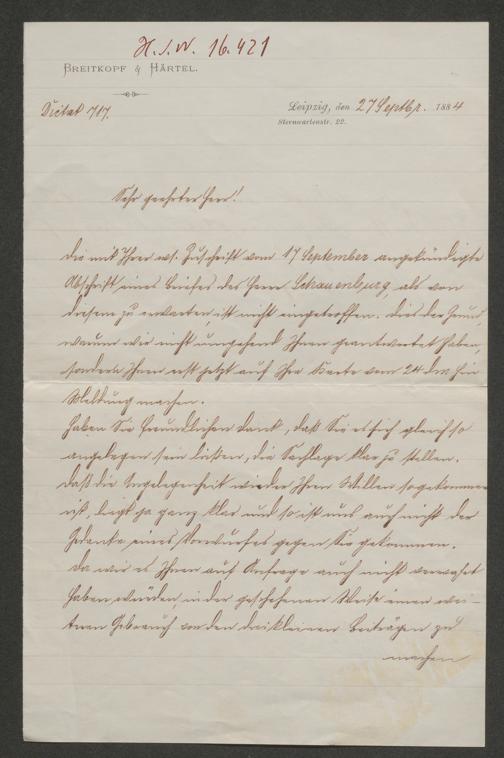 H.I.N. 16.421
BREITKOPF & HÄRTEL.
Dictat 717.
Leipzig, den 27 Septbr. 1884
Sternwartenstr. 22.
Sehr geehrter Herr!
Die mit Ihrer w. Zuschrift vom 17 September angekündigte
Abschrift eines Briefes des Herrn Schauenburg, als von
diesem zu erwarten, ist nicht eingetroffen. Dies der Grund,
warum wir nicht umgehend Ihnen geantwortet haben,
sondern Ihnen erst jetzt auf Ihre Karte vom 24 dM. hin
Meldung machen.
Haben Sie freundlichen Dank, daß Sie es sich gleich so
angelegen sein ließen, die Sachlage klar zu stellen.
Daß die Angelegenheit wieder Ihren Willen so gekommen
ist, liegt ja ganz klar und so ist uns auch nicht der
Gedanke eines Vorwurfes gegen Sie gekommen.
Da wir es Ihnen auf Anfrage auch nicht verwehrt
haben würden, in der geschehenen Weise einen wei-
teren Gebrauch von den drei kleinen Beiträgen zu
machen